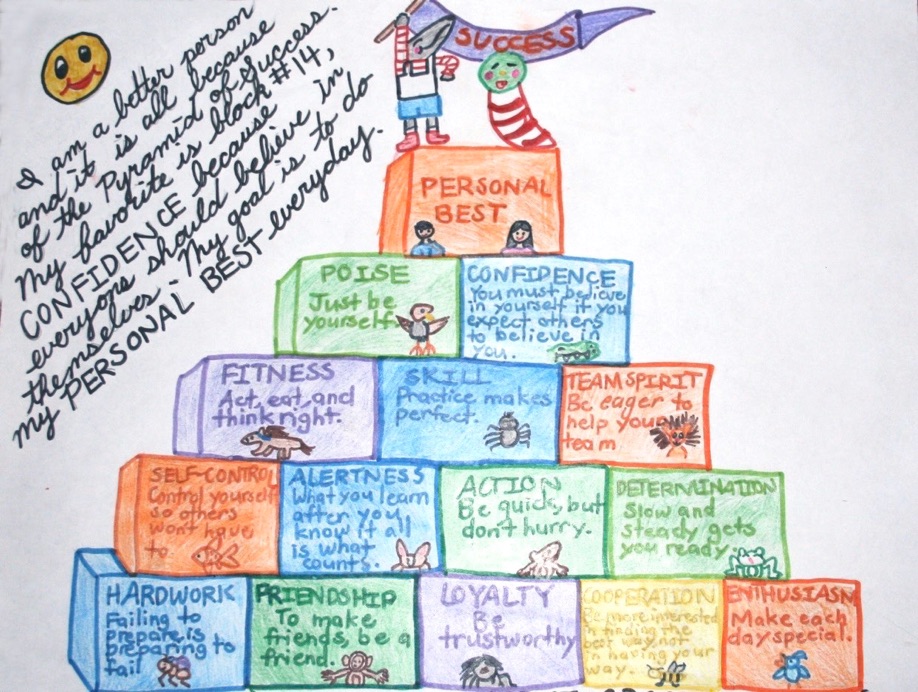 I am a better person
and it is all because
of the Pyramid of Success.
My favorite is block #14,
CONFIDENCE because
everyons should believe in
themselves. My goal is to do
my PERSONAL BEST everyday.
SUCCESS
PERSONAL
BEST
POISE
Just be
yourself.
CONFIDENCE
You must believe
in yourself if you
expect others
to believe in
you.
FITNESS
Act, eat, and
think right.
SKILL
Practice makes
perfect.
TEAM SPIRIT
Be eager to
help your
team
SELF-CONTROL
Control yourself
so others
won't have
to.
ALERTNESS
What you learn
after you
know it all
is what
counts.
ACTION
Be quick, but
don't hurry.
DETERMINATION
Slow and
steady gets
you ready.
HARDWORK
Failing to
prepare is
preparing to
fail
FRIENDSHIP
To make
friends, be a
friend.
LOYALTY
Be
trustworthy
COOPERATION
Be more interested
in finding the
best way, not
in having your
way.
ENTHUSIASM
Make each
day special.